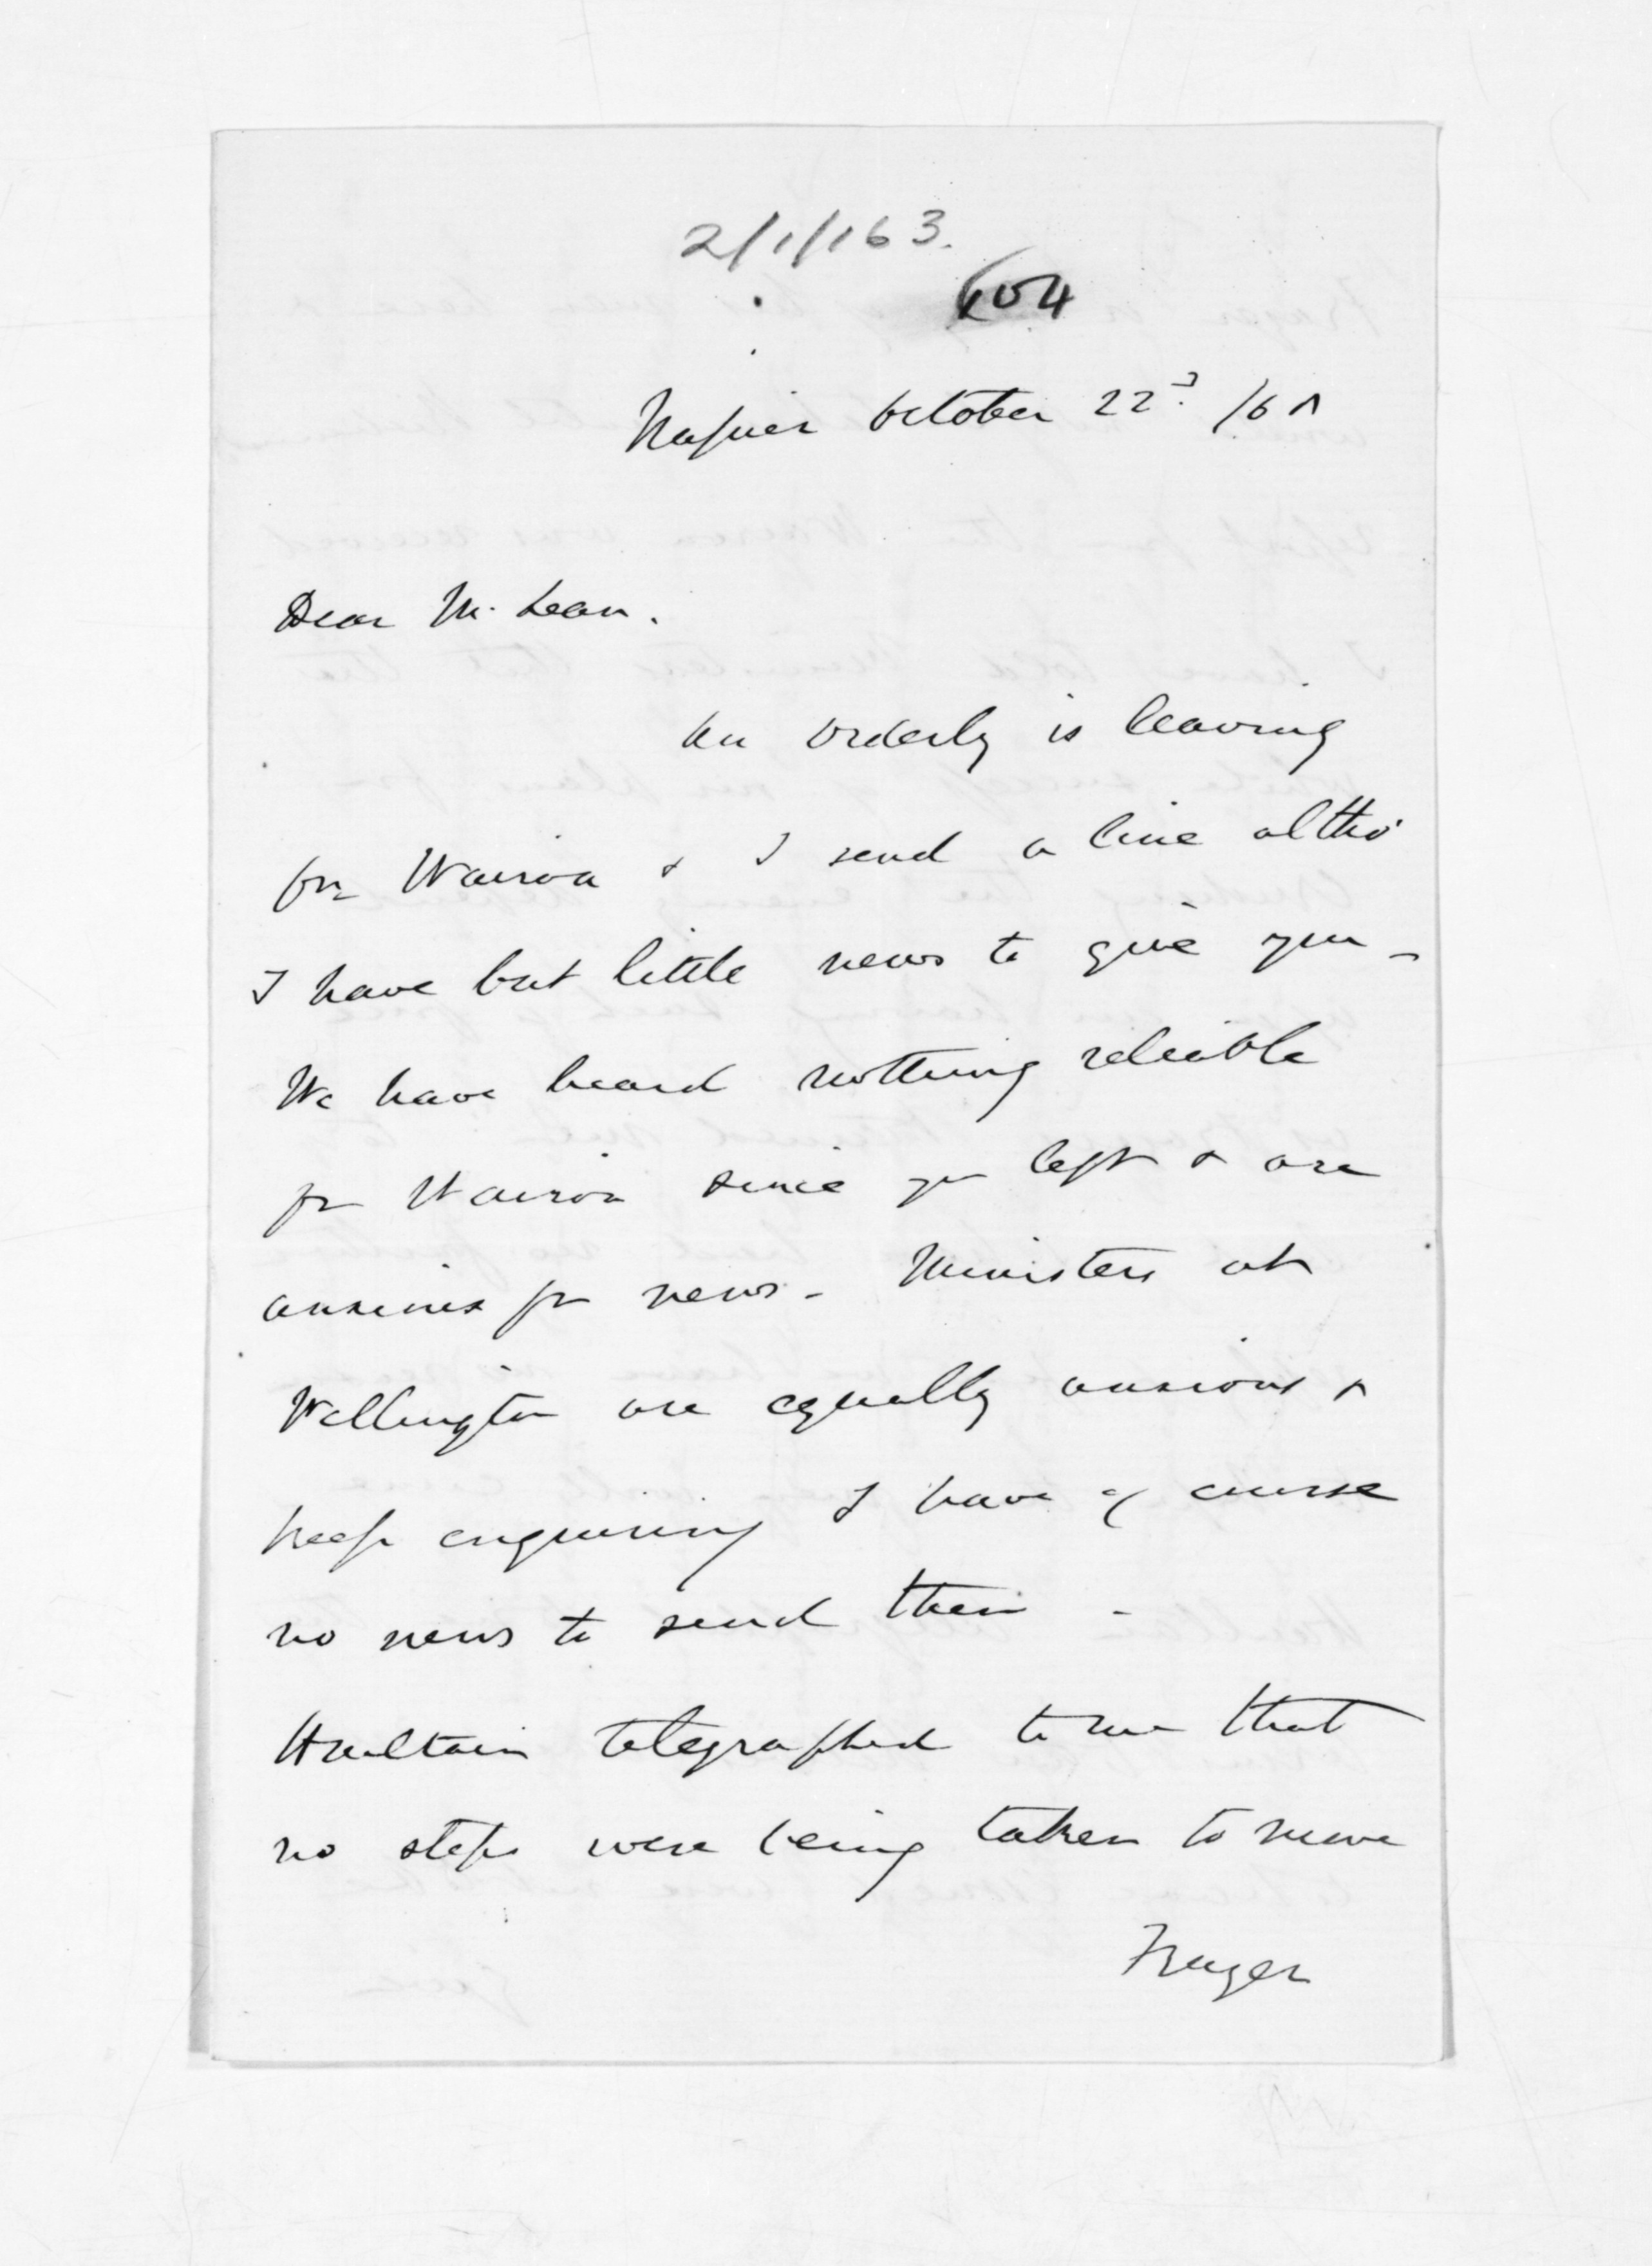 2/1/163.
604
Napier October 22d /68
Dear McLean.
An orderly is leaving
for Wairoa & I send a line altho'
I have but little news to give you -
We have heard nothing reliable
fr Wairoa since you left & are
anxious for news - Ministers at
Wellington are equally anxious &
keep enquiring I have of course
no news to send them -
Haultain telegraphed to me that
no steps were being taken to move
Frazer